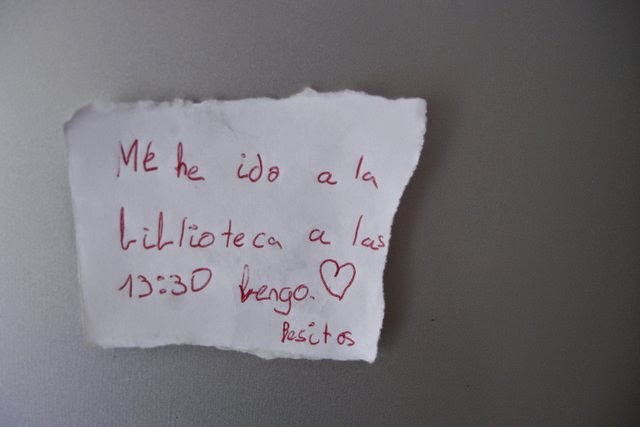 Me he ido a la
biblioteca a las
13:30 bengo. ♡
Besitos